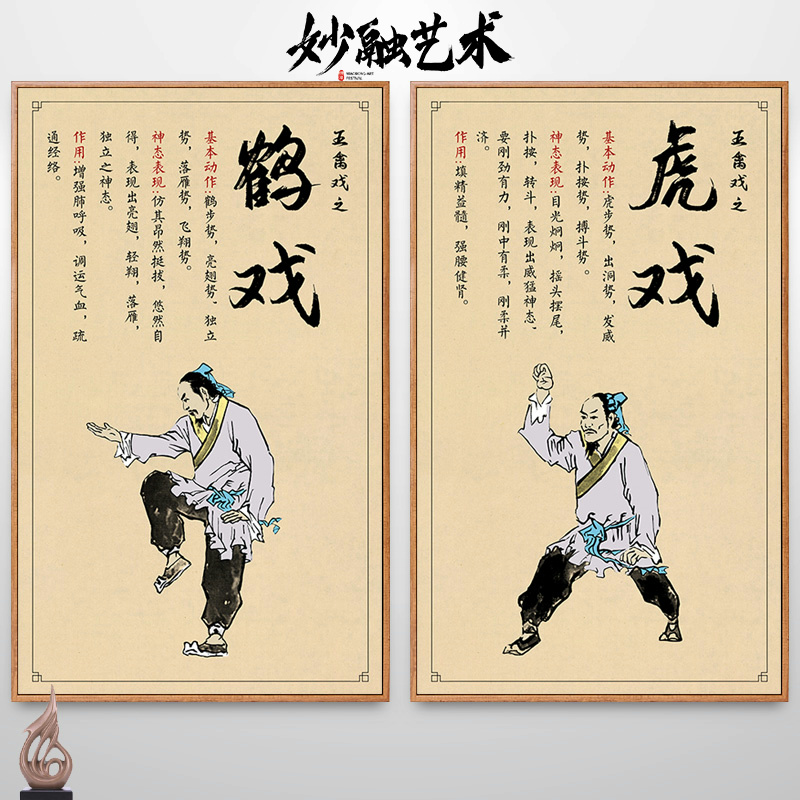 妙融艺术
五禽戏之
鹤戏
基本动作:鹤步势,亮翅势、独立
势,落雁势,飞翔势。
神态表现:仿其昂然挺拔,悠然自
得,表现出亮翅,轻翔,落雁,
独立之神态。
作用:增强肺呼吸,调运气血,疏
通经络。
五禽戏之
虎戏
基本动作:虎步势,出洞势,发威
势,扑按势,搏斗势。
神态表现:目光炯炯,摇头摆尾,
扑按,转斗,表现出威猛神态、
要刚劲有力,刚中有柔,刚柔并
济。
作用:填精益髓,强腰健肾。